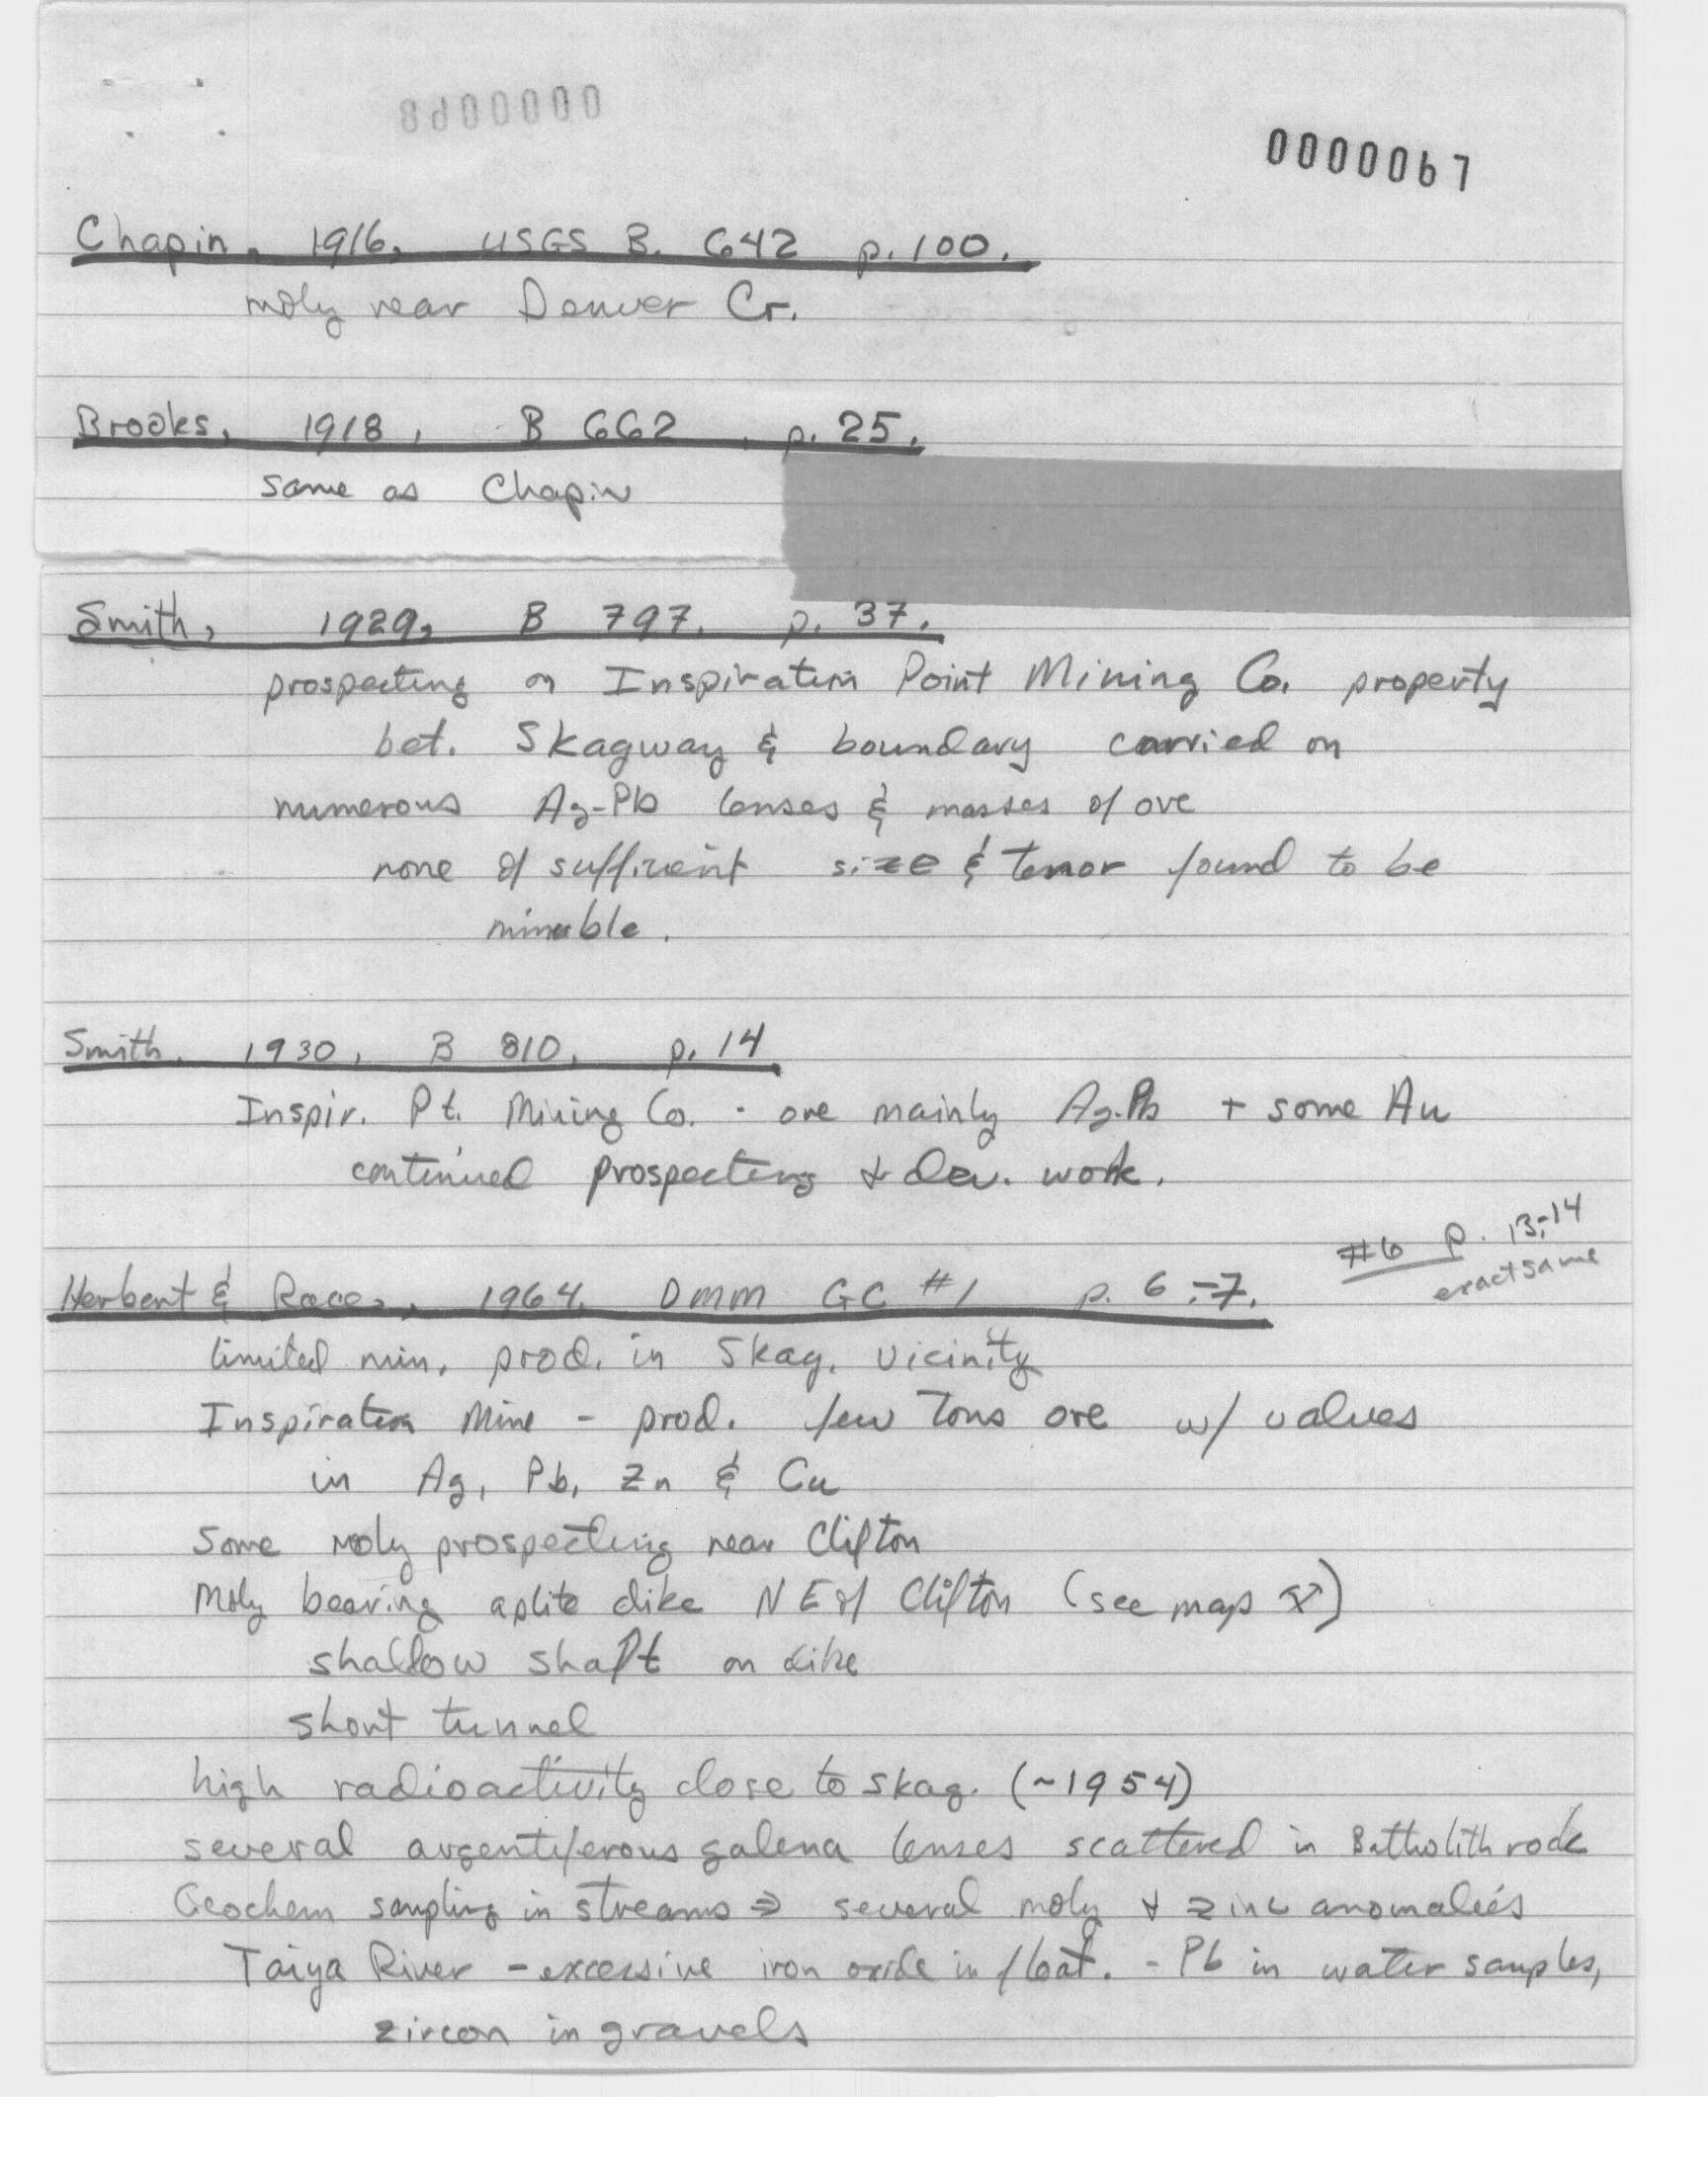 0000067
Chapin, 1916, USGS B. 642 p. 100.
moly near Denver Cr.
Brooks, 1918, B 662, p. 25.
same as Chapin
Smith, 1929, B 797, p. 37.
prospecting on Inspiration Point Mining Co. property
bet. Skagway & boundary carried on
numerous Ag-Pb lenses & masses of ore
none of sufficient size & tenor found to be
minable.
Smith, 1930, B 810, p. 14
Inspir. Pt. Mining Co. - ore mainly Ag-Pb + some Au
continued prospecting & dev. work.
#6 p. 13-14
exact same
Herbert & Race, 1964, DMM GC #1 p. 6-7.
limited min. prod. in Skag. vicinity
Inspiration Mine - prod. few Tons ore w/ values
in Ag, Pb, Zn & Cu
Some moly prospecting near Clifton
Moly bearing aplite dike NE of Clifton (see map ⚒)
shallow shaft on dike
short tunnel
high radioactivity close to Skag. (~1954)
several argentiferous galena lenses scattered in Batholith rock
Geochem sampling in streams ⇒ several moly & zinc anomalies
Taiya River - excessive iron oxide in float. - Pb in water samples,
zircon in gravels